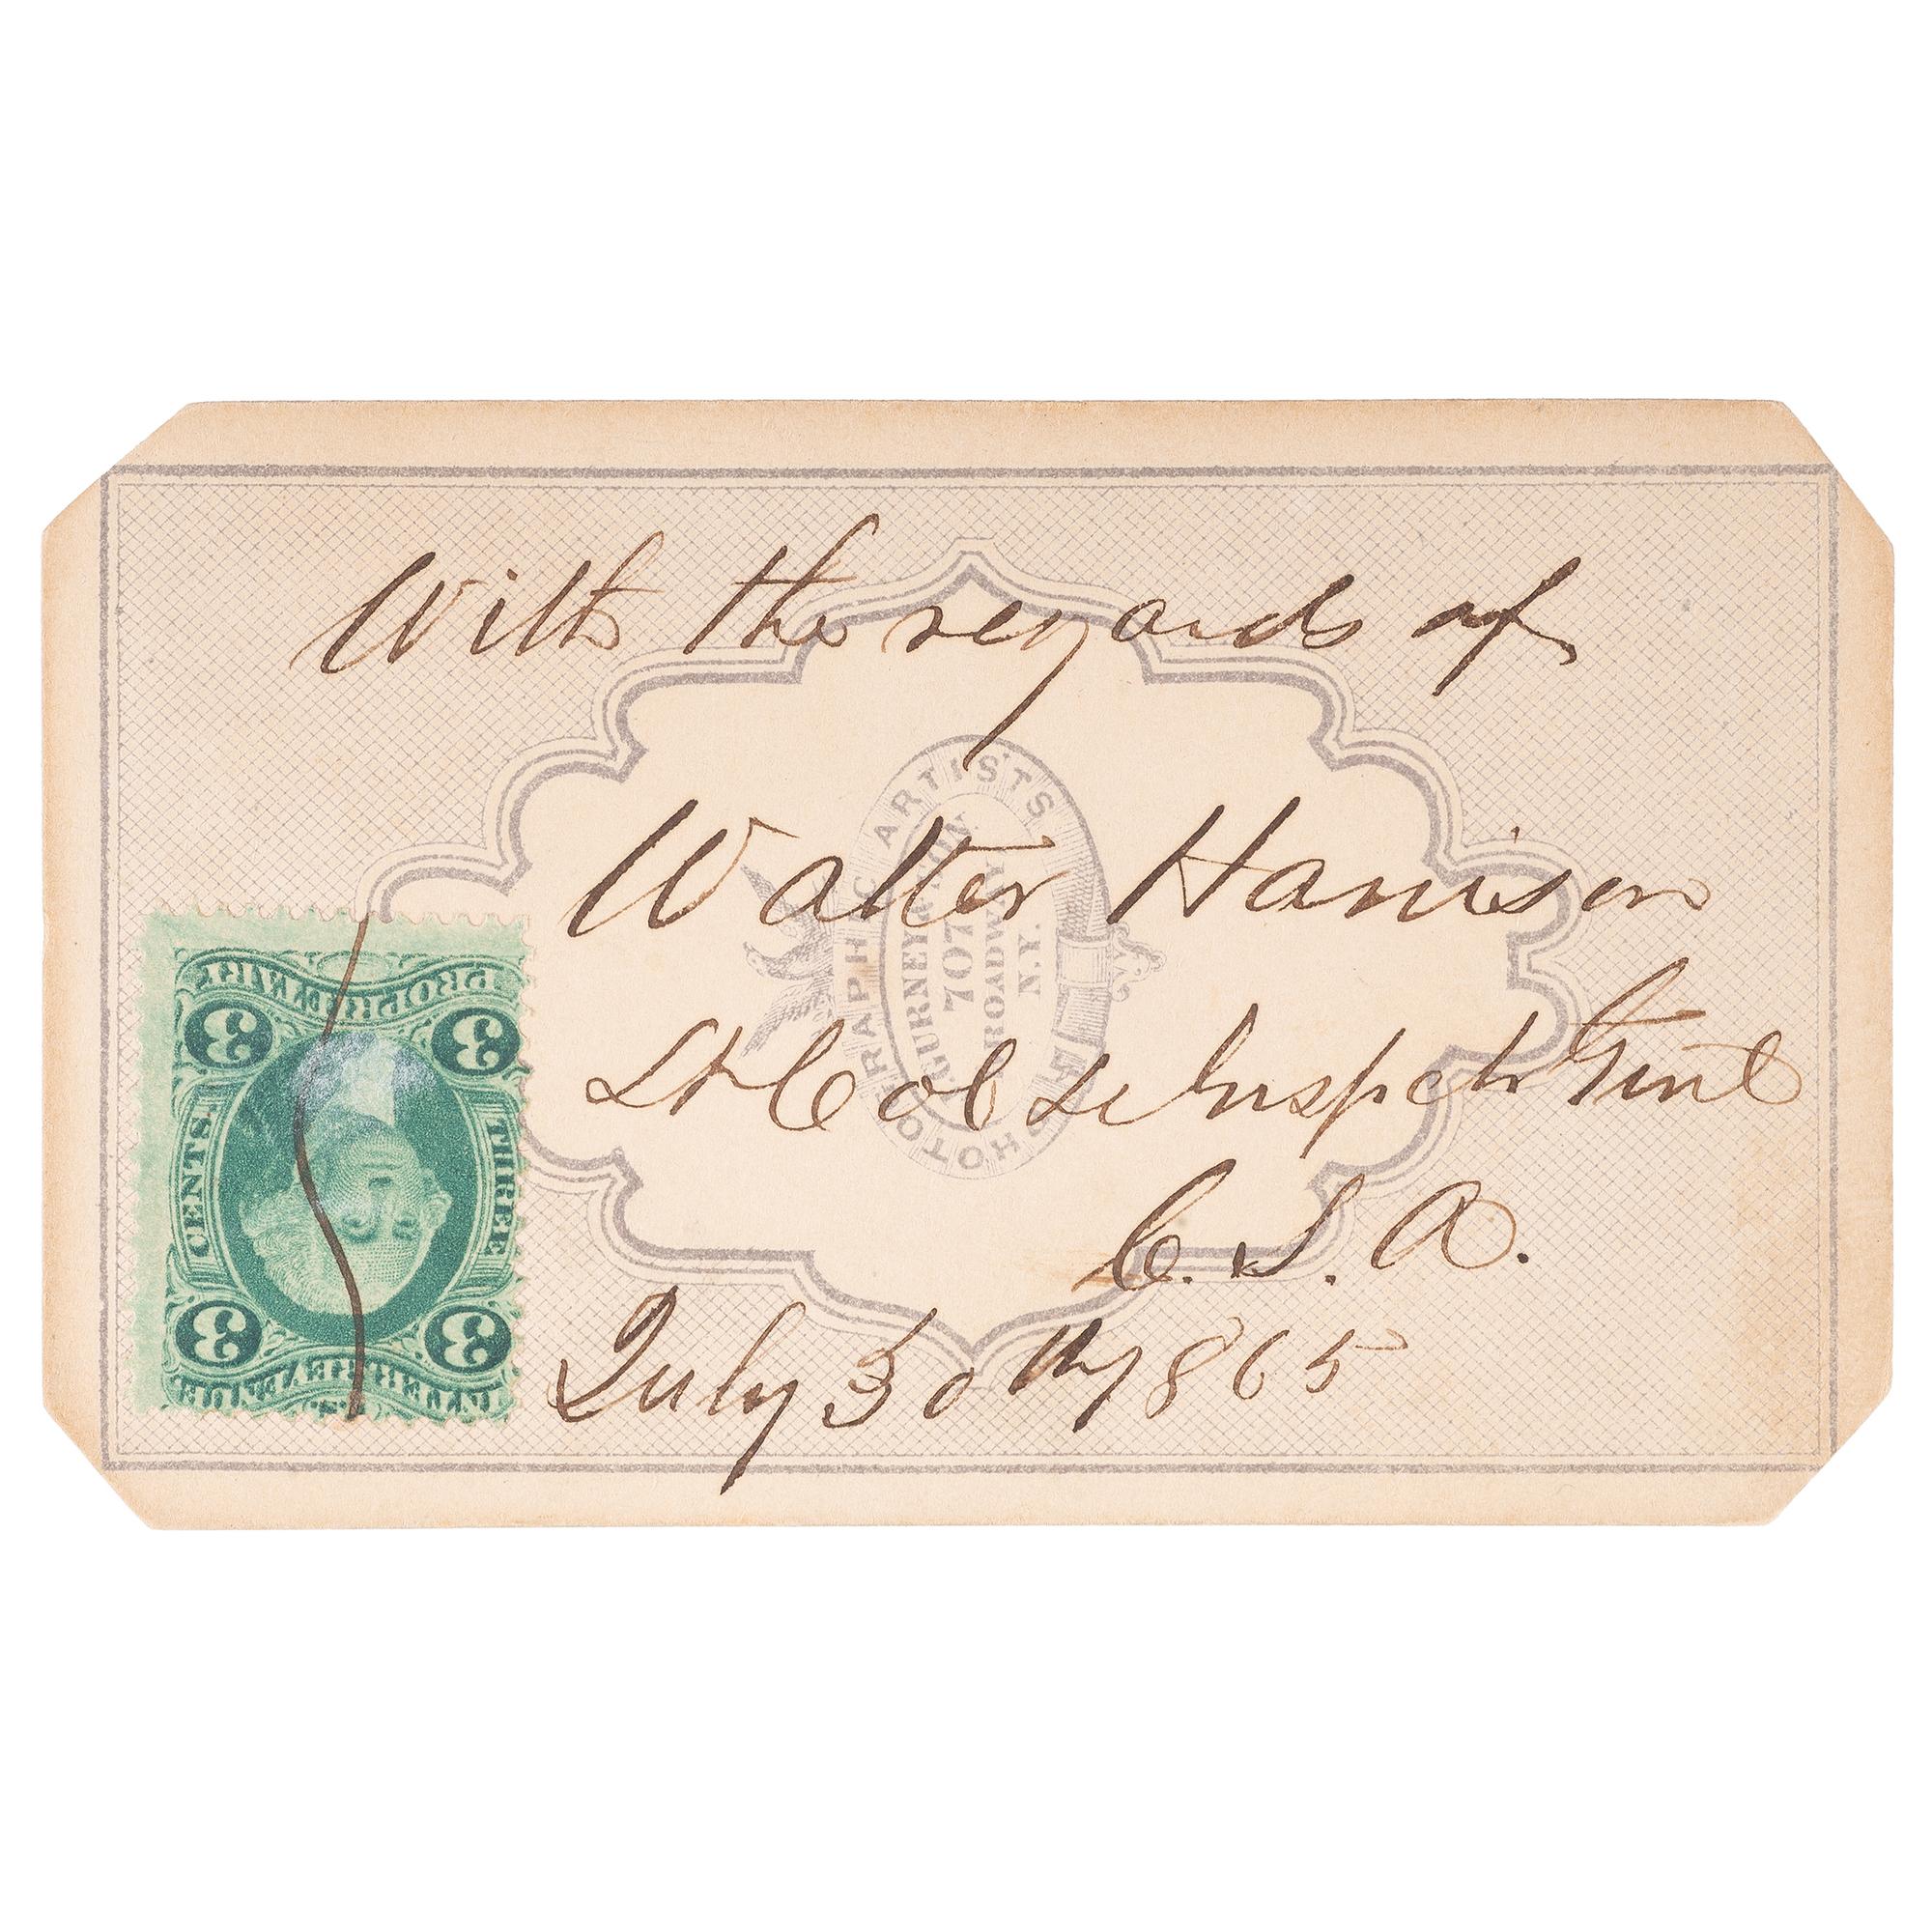 With the regards of
Walter Harrison
Lt Col & Inspctr Genl
C. S. A.
July 30th 1865
PHOTOGRAPHIC ARTISTS
GURNEY & SON
707
BROADWAY
N.Y.
PROPRIETARY
3 3
THREE
CENTS.
3 3
U.S. INTER. REVENUE